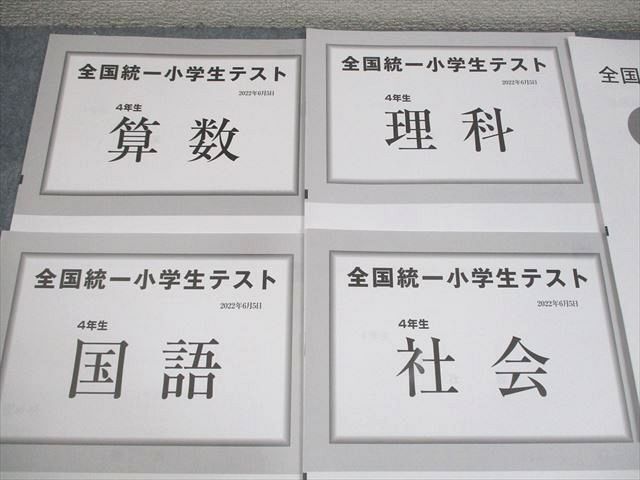 全国統一小学生テスト
2022年6月5日
4年生
算数
全国統一小学生テスト
2022年6月5日
4年生
理科
全国
全国統一小学生テスト
2022年6月5日
4年生
国語
全国統一小学生テスト
2022年6月5日
4年生
社会